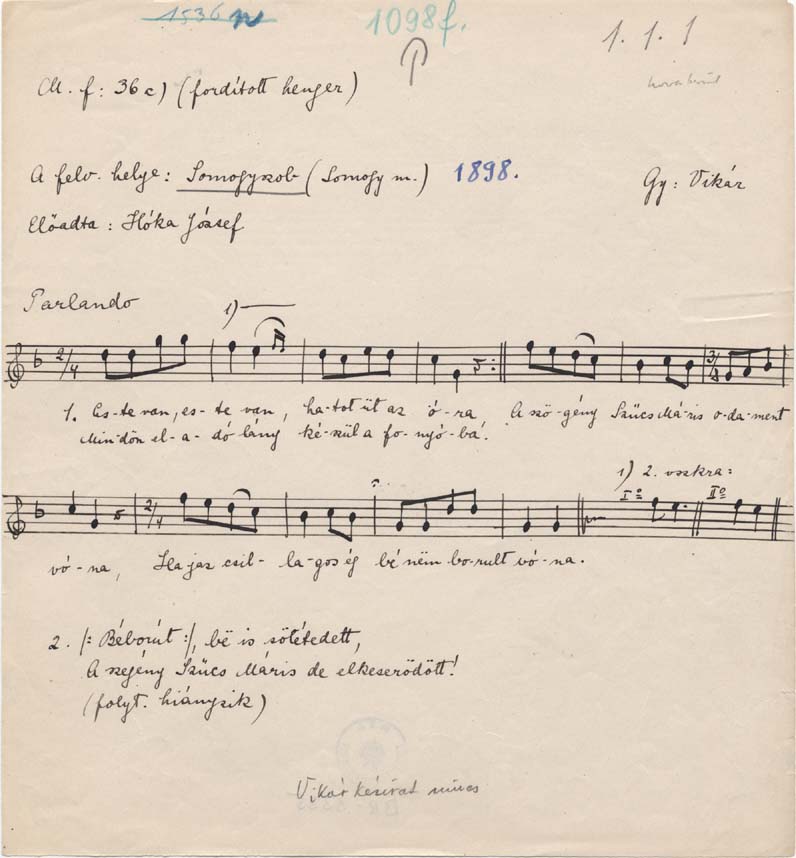 1536
1098f.
1. 1. 1
M. f: 36 c) (fordított henger)
A felv. helye: Somogyszob (Somogy m.) 1898. Gy: Vikár
Előadta: Hóka József
Parlando 1)
1. Es-te van, es-te van, ha-tot üt az ó-ra A szö-gény Szűcs Má-ris o-da-ment
Min-dön el-a-dó lány ké-szül a fo-nyó-bá.
1) 2. vszkra:
Iº IIº
vó-na, Ha jaz csil-la-gos ég bé nëm bo-rult vó-na.
2. /: Béborút :/, bë is sötétedett,
A szegény Szűcs Máris de elkeserödött!
(folyt. hiányzik)
Vikár kézirat nincs